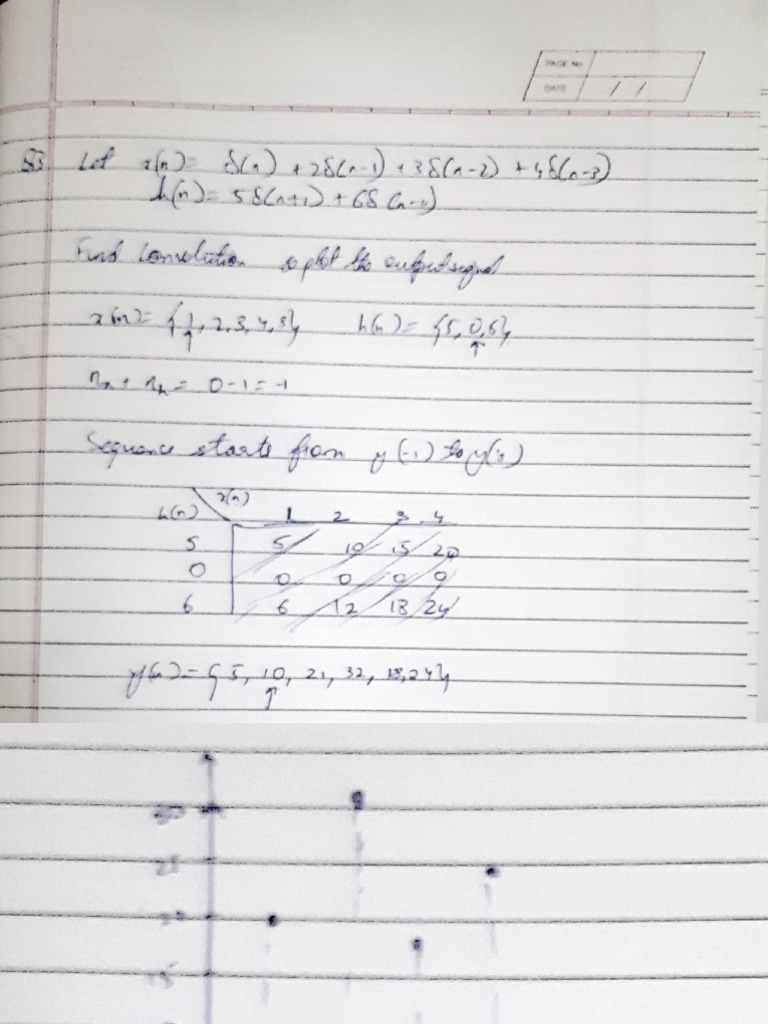 PAGE No
DATE / /
Q3 Let x(n) = δ(n) + 2δ(n-1) + 3δ(n-2) + 4δ(n-3)
h(n) = 5δ(n+1) + 6δ(n-1)
Find convolution & plot the output signal
x(n) = {1, 2, 3, 4, } h(n) = {5, 0, 6},
↑ ↑
nx + nh = 0 - 1 = -1
Sequence starts from y(-1) to y(4)
x(n)
h(n) 1 2 3 4
5 5 10 15 20
0 0 0 0 0
6 6 12 18 24
y(n) = {5, 10, 21, 32, 18, 24},
↑
25
15